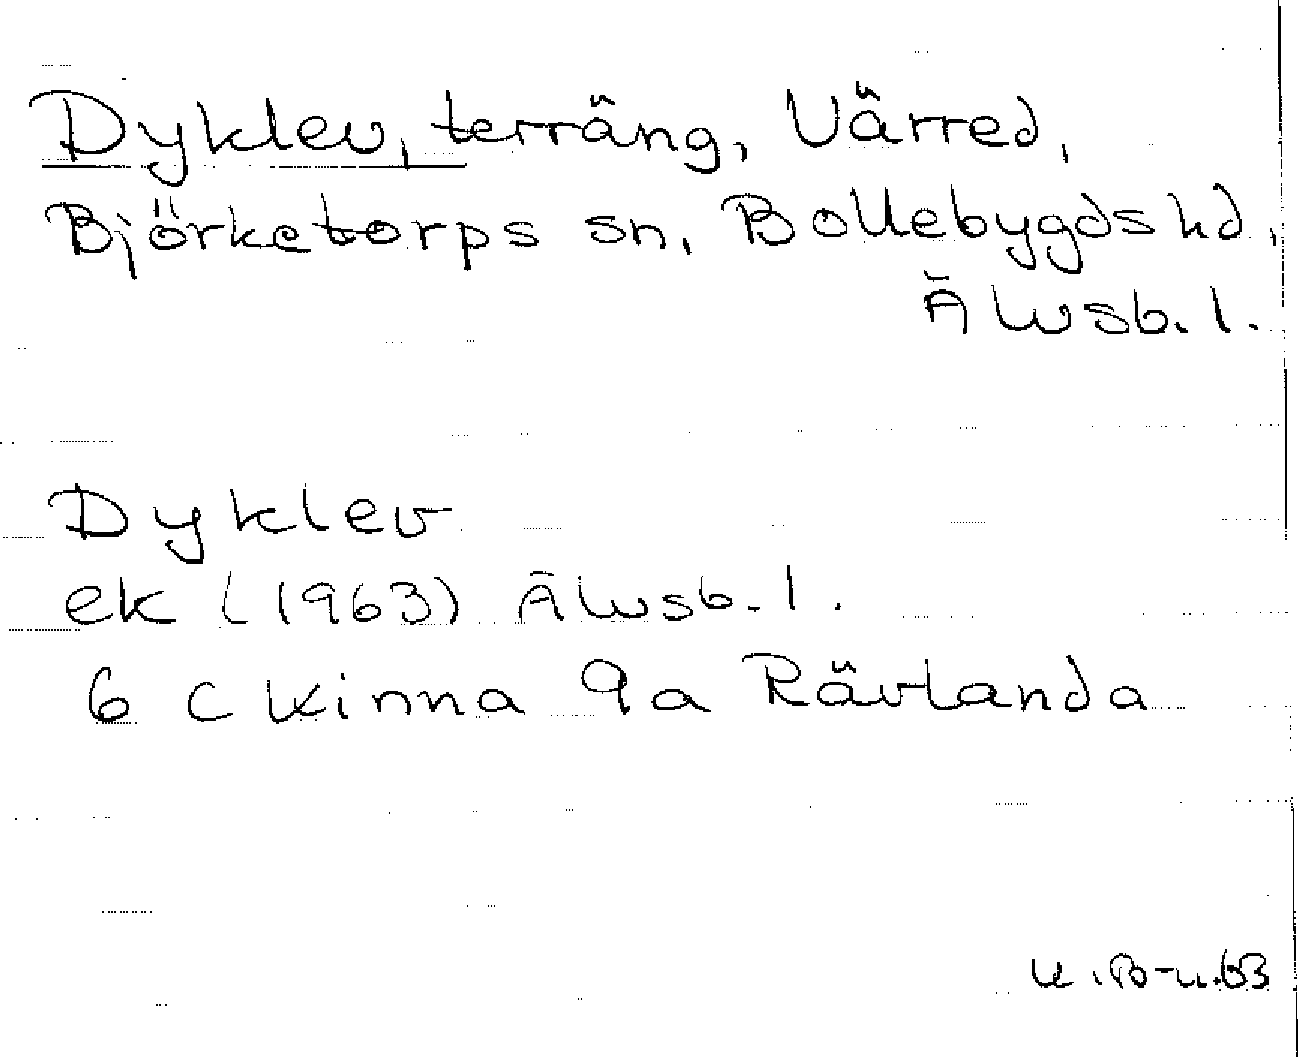 Dyklev, terräng, Värred,
Björketorps sn, Bollebygds hd,
Älvsb. l.
Dyklev
ek (1963) Älvsb. l.
6 C Kinna 9a Rävlanda